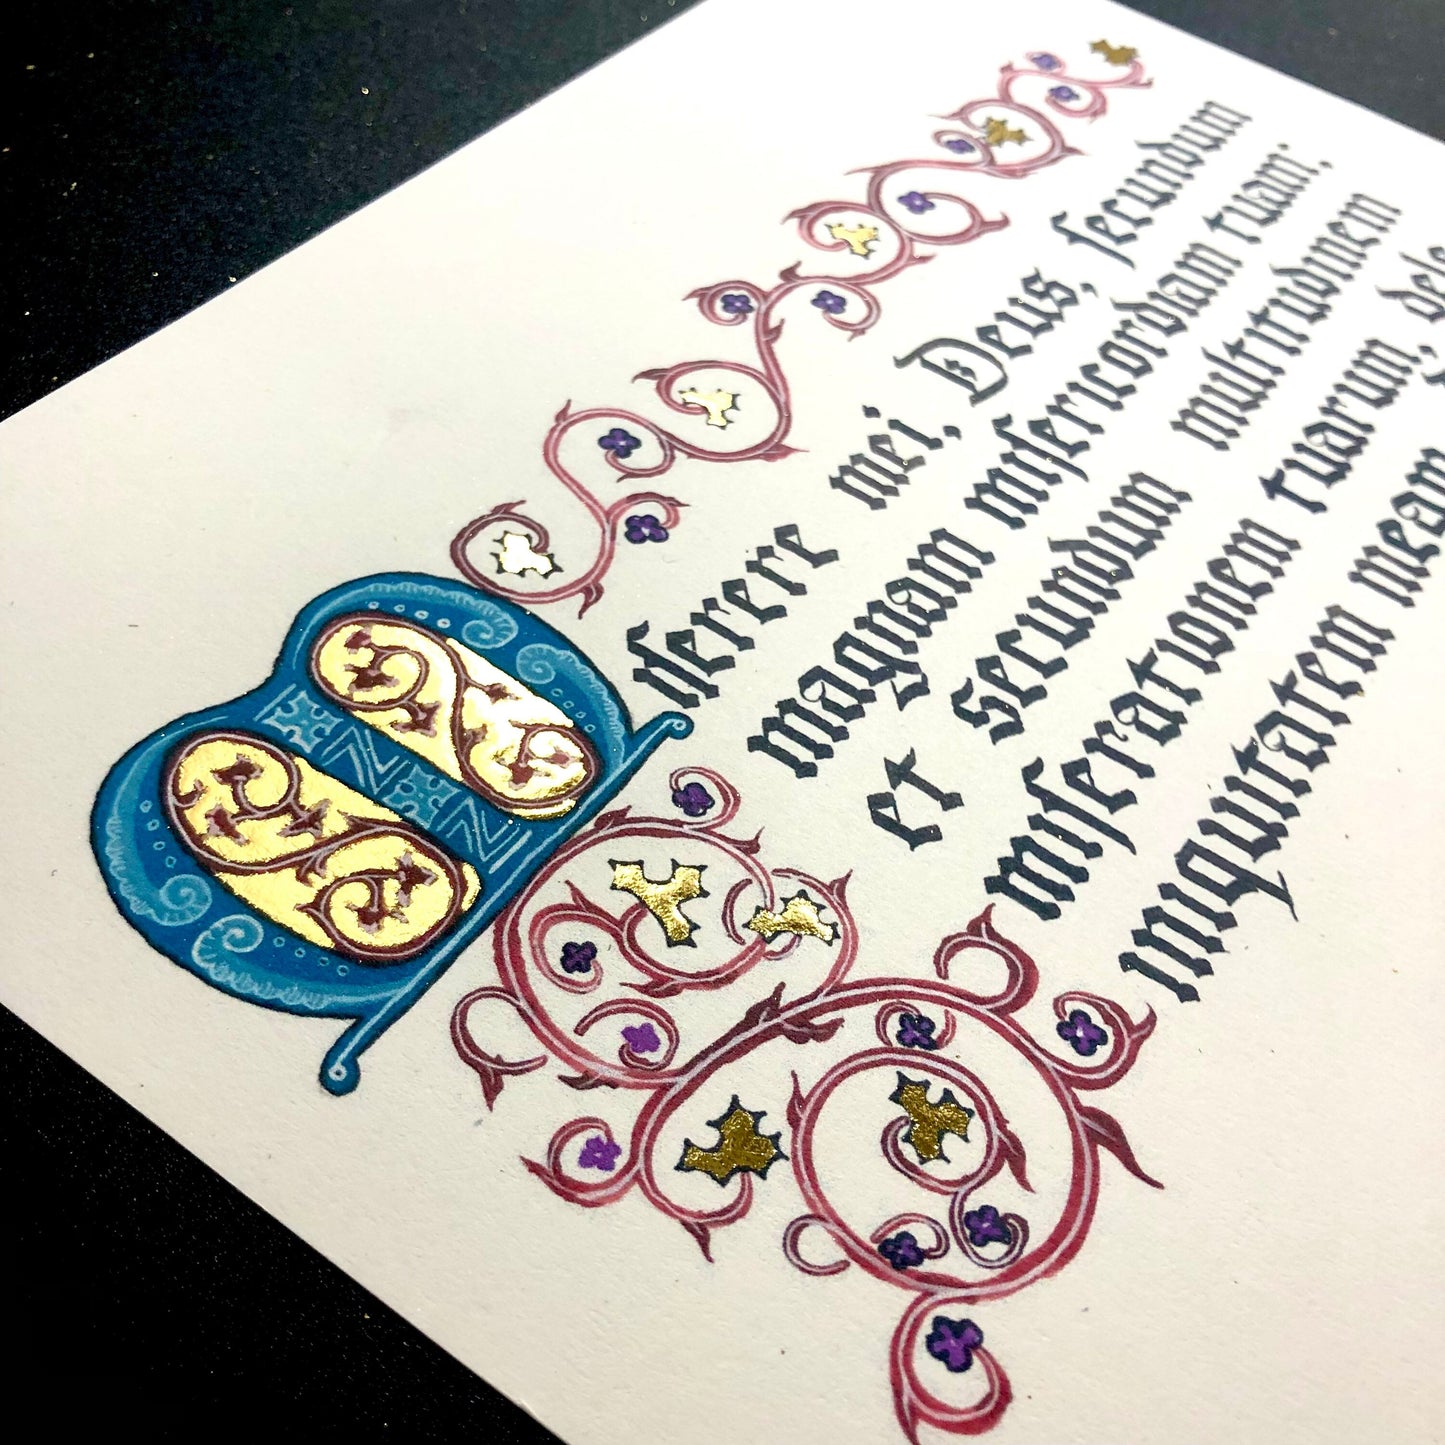 Miſerere mei, Deus, ſecundum
magnam miſericordiam tuam;
et secundum multitudinem
miſerationem tuarum,
iniquitatem meam